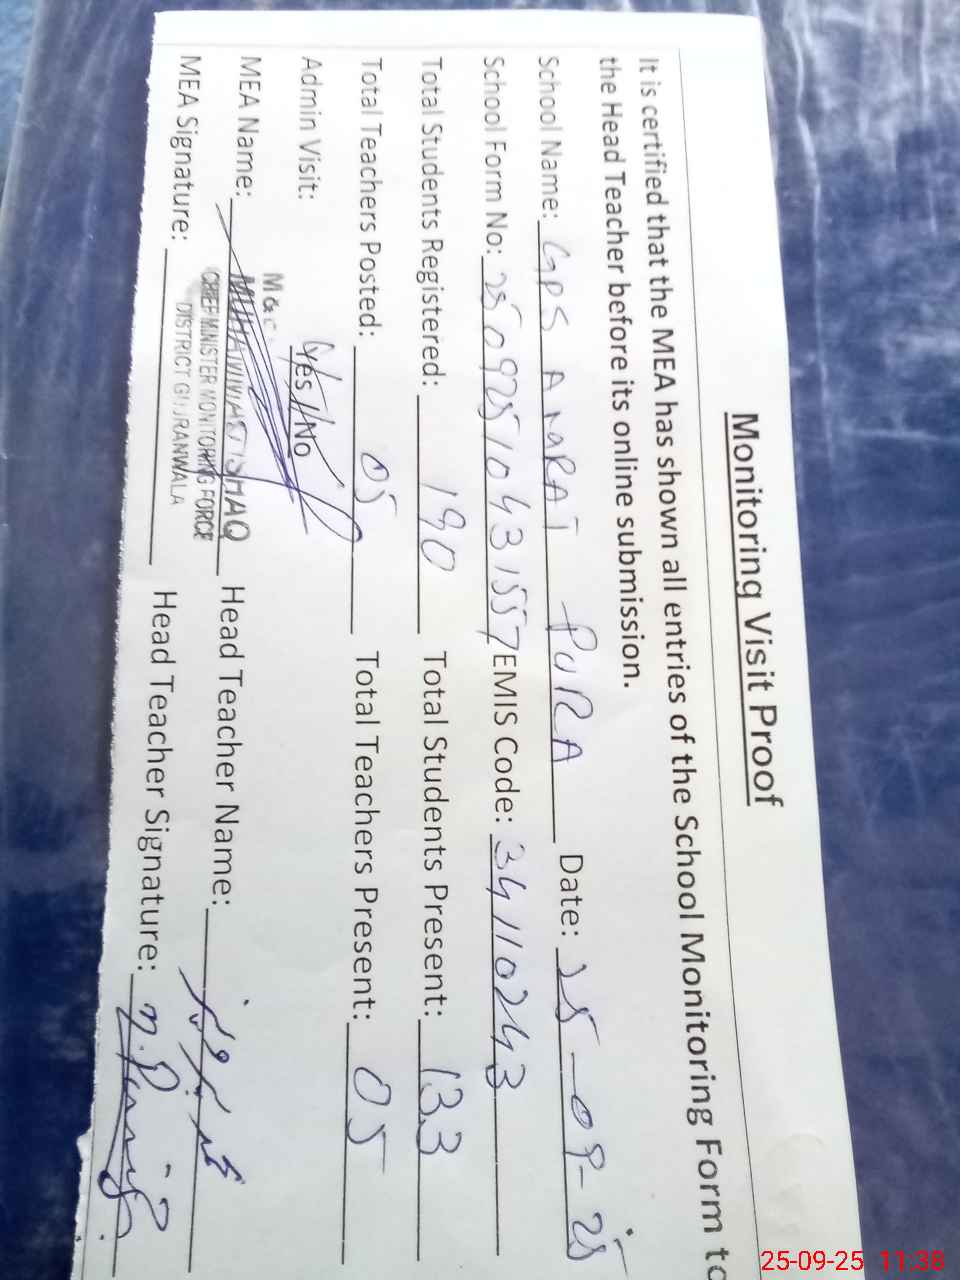 Monitoring Visit Proof
It is certified that the MEA has shown all entries of the School Monitoring Form to
the Head Teacher before its online submission.
School Name: GPS PURA Date: 25-09-25
School Form No: 25092510431557 EMIS Code: 34110243
Total Students Registered: 190 Total Students Present: 133
Total Teachers Posted: 05 Total Teachers Present: 05
Admin Visit: Yes / No
MEA Name: ISHAQ Head Teacher Name:
CHIEF MINISTER MONITORING FORCE
DISTRICT GUJRANWALA
MEA Signature: Head Teacher Signature:
25-09-25 11:38